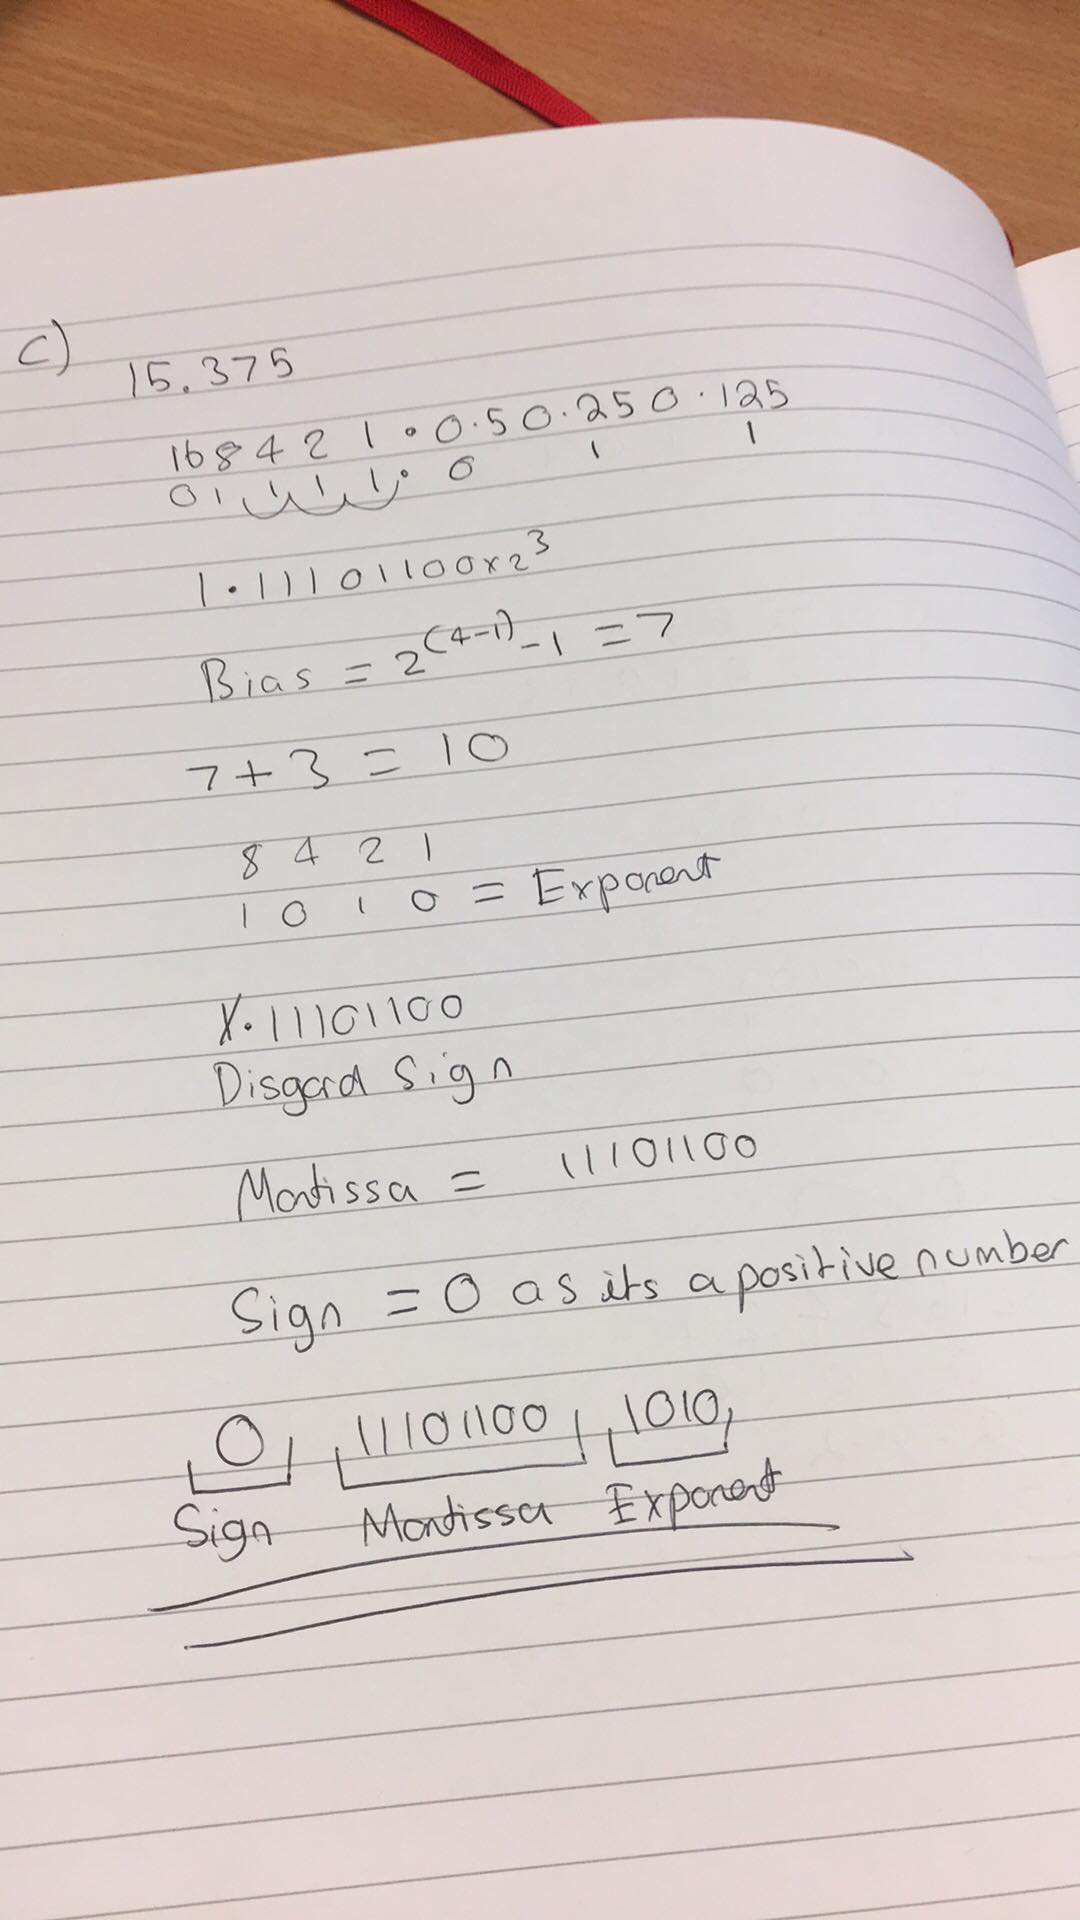 c)
15.375
16 8 4 2 1 . 0.5 0.250 0.125
0 1 1 1 1 . 0 1 1
1.11101100x2^3
Bias = 2^(4-1) -1 = 7
7+3 = 10
8 4 2 1
1 0 1 0 = Exponent
1.11101100
Disgard Sign
Mantissa = 11101100
Sign = 0 as its a positive number
0 11101100 1010
Sign Mantissa Exponent